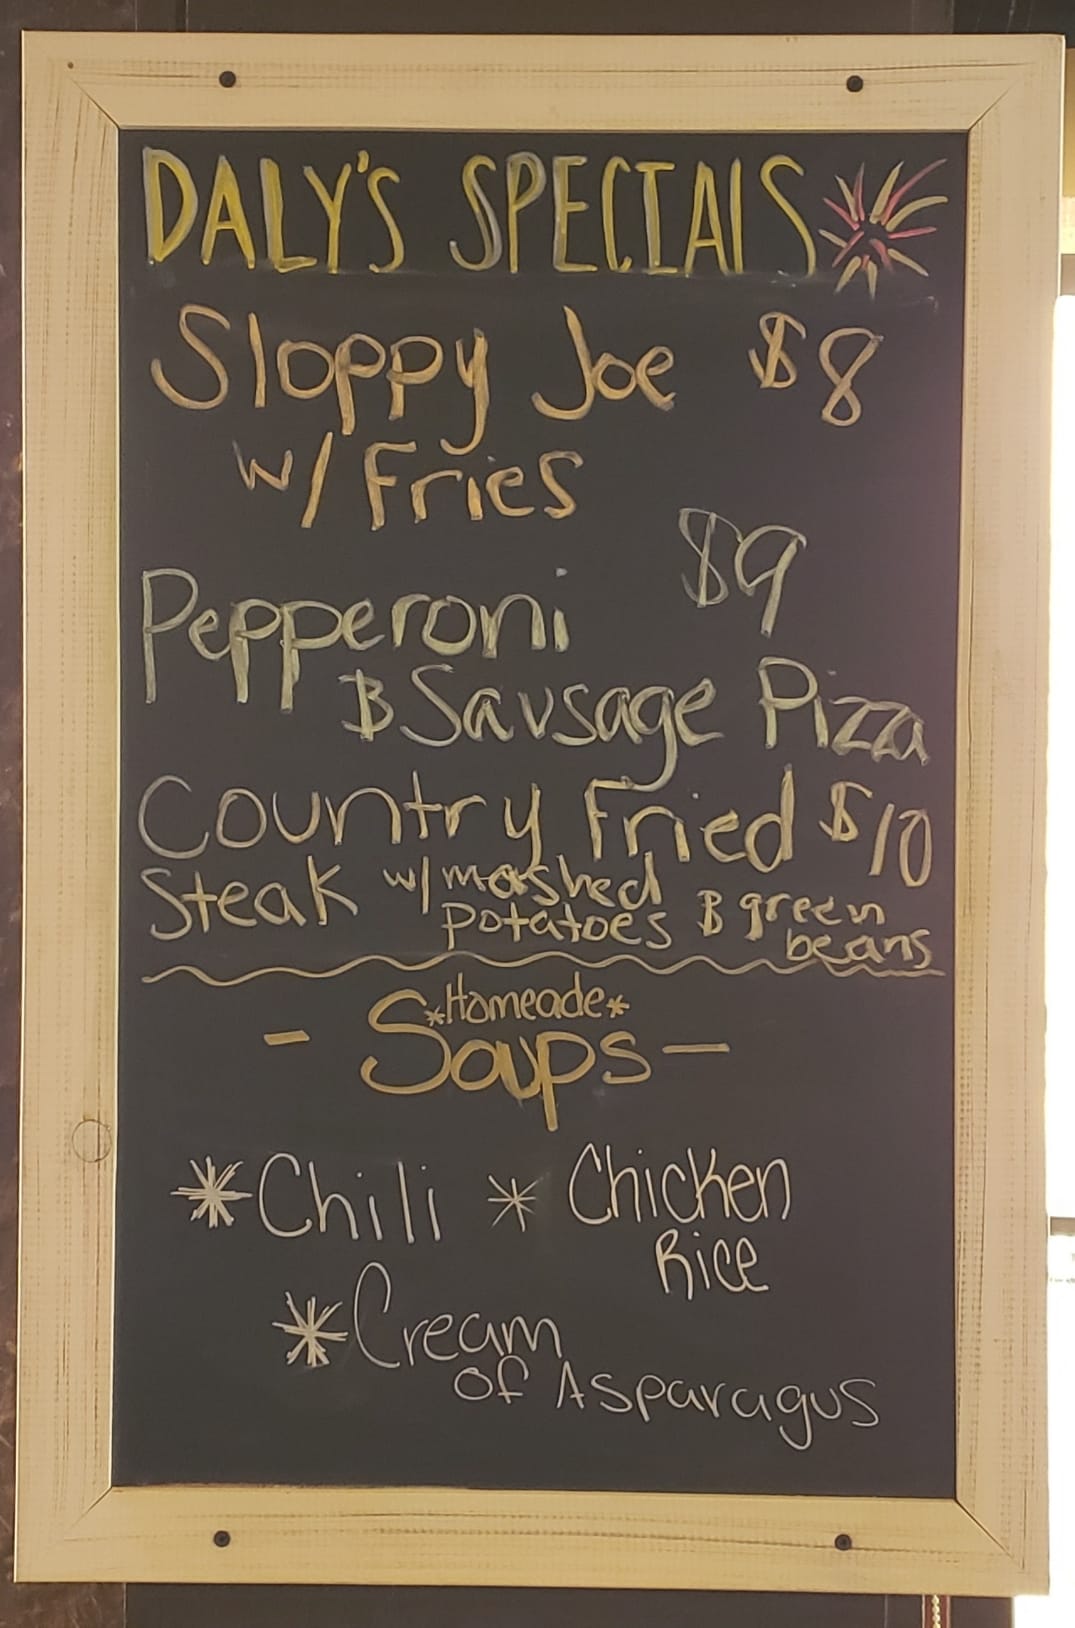 DALY'S SPECIALS
Sloppy Joe $8
w/ Fries
$9
Pepperoni
& Sausage Pizza
Country Fried $10
Steak w/ mashed
potatoes & green
beans
*Homeade*
- Soups -
* Chili * Chicken
Rice
* Cream
of Asparagus